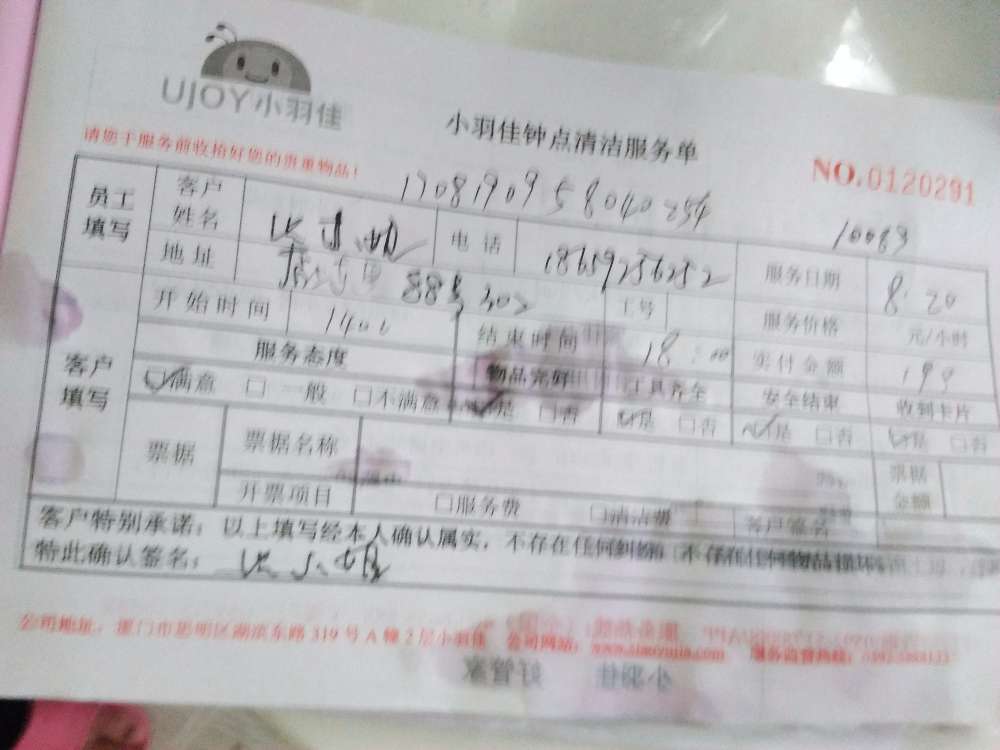 UJOY小羽佳
小羽佳钟点清洁服务单
请您于服务前收拾好您的贵重物品！
NO.0120291
1908190958040254
10089
员工填写 客户姓名 电话 18659256252 服务日期 8.20
地址 88号302 工号 服务价格 元/小时
客户填写 开始时间 1400 结束时间 18:00 实付金额 199
服务态度 物品完好 工具齐全 安全结束 收到卡片
☑满意 □一般 □不满意 ☑是 □否 ☑是 □否 ☑是 □否 ☑是 □否
票据 票据名称 票据金额
开票项目 □服务费 □清洁费 客户签名
客户特别承诺：以上填写经本人确认属实，不存在任何纠纷
特此确认签名：
公司地址：厦门市思明区湖滨东路319号A幢2层小羽佳 公司网站：www.xiaoyujia.com 服务监督热线：